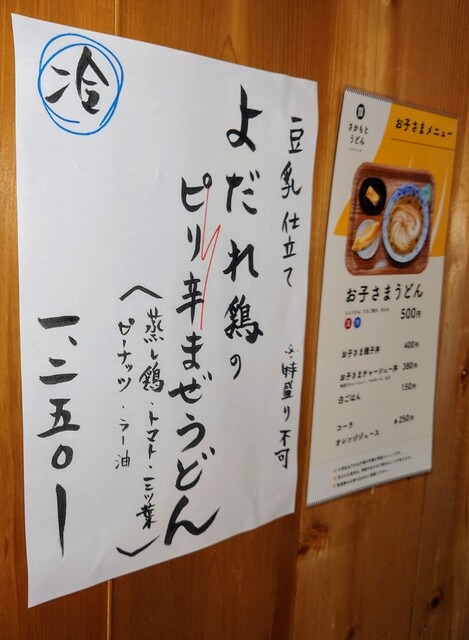 冷
豆乳仕立て
※特盛り不可
よだれ鶏の
ピリ辛まぜうどん
(蒸し鶏・トマト・三ツ葉
ピーナッツ・ラー油)
一、二五〇ー
さかもと
うどん
お子さまメニュー
お子さまうどん
500円
温 冷
お子さま親子丼 400円
お子さまチャーシュー丼 380円
白ごはん 150円
コーラ
オレンジジュース
各250円